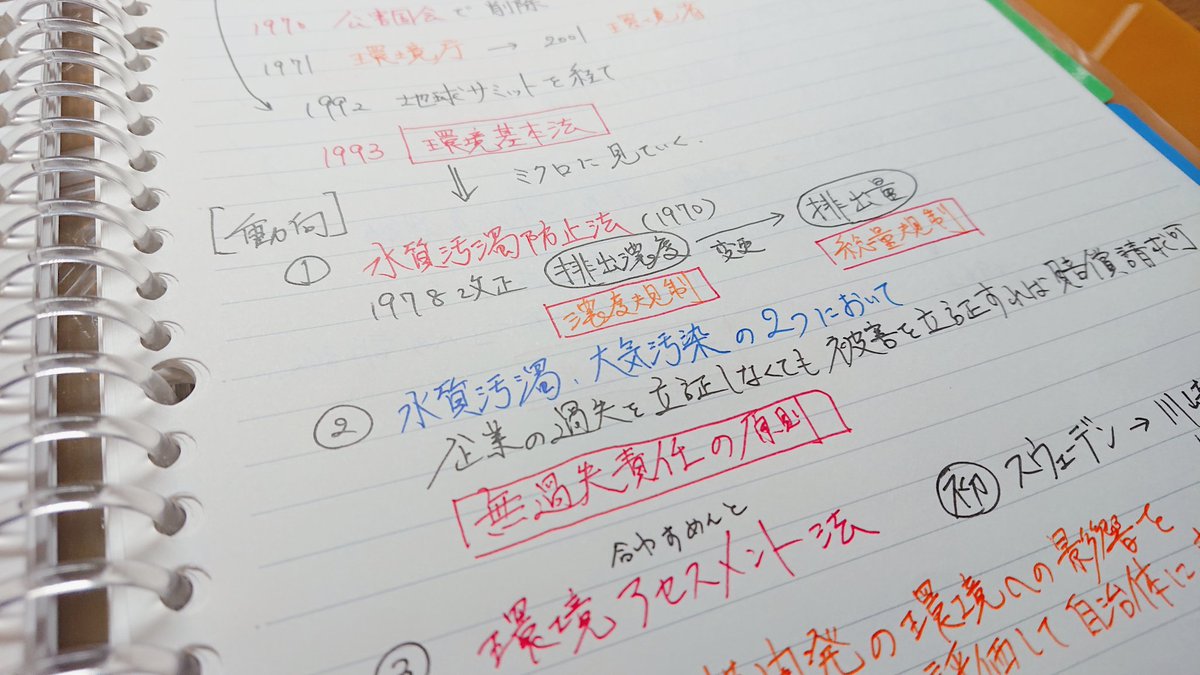 1970 公害国会で削除
1971 環境庁 → 2001 環境省
1992 地球サミットを経て
1993 環境基本法
⇓ ミクロに見ていく.
[動向]
① 水質汚濁防止法 (1970)
1978 改正 排出濃度 変更 → 排出量
濃度規制 総量規制
② 水質汚濁、大気汚染の2つにおいて
企業の過失を立証しなくても被害を立証すれば賠償請求可
無過失責任の原則
㊙ スウェーデン → 川
③ 環境アセスメント法
開発の環境への影響を
評価して自治体に